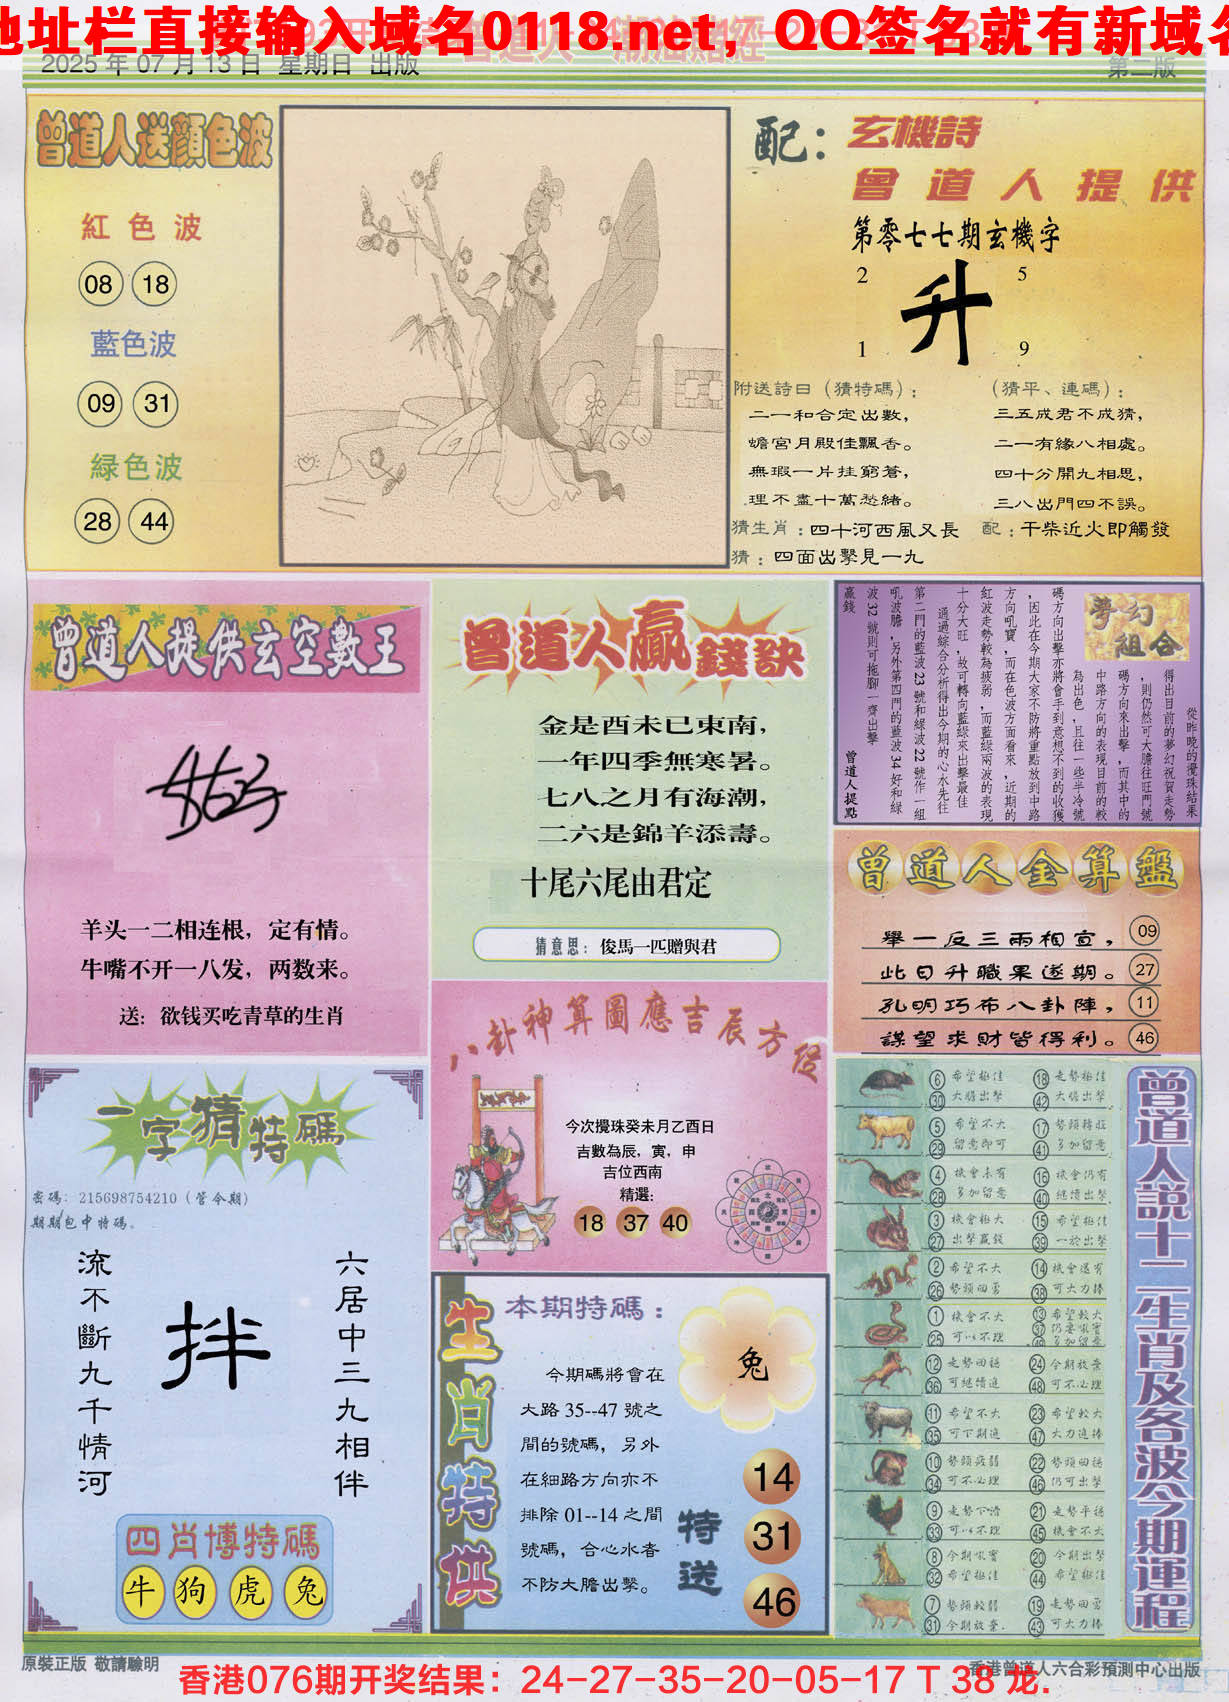 地址栏直接输入域名0118.net，QQ签名就有新域名
2025 年 07 月 13 日 星期日 出版
第二版
曾道人送顏色波
紅色波
08 18
藍色波
09 31
緑色波
28 44
配：玄機詩
曾道人提供
第零七七期玄機字
2 5
升
1 9
附送詩曰（猜特碼）：
二一和合定出數，
蟾宮月殿佳飄香。
無瑕一片挂窮蒼，
理不盡十萬愁緒。
（猜平、連碼）：
三五成君不成猜，
二一有緣八相處。
四十分開九相思，
三八出門四不誤。
猜生肖：四十河西風又長
配：干柴近火即觸發
猜：四面出擊見一九
曾道人提供玄空數王
羊头一二相连根，定有情。
牛嘴不开一八发，两数来。
送：欲钱买吃青草的生肖
曾道人贏錢訣
金是酉未已東南，
一年四季無寒暑。
七八之月有海潮，
二六是錦羊添壽。
十尾六尾由君定
猜意思：俊馬一匹贈與君
夢幻組合
從昨晚的攪珠結果
得出目前的夢幻祝賀走勢
，則仍然可大膽往旺門號
碼方向來出擊，而其中的
中路方向的表現目前的較
為出色，且往一些半冷號
碼方向出擊亦將會手到意想不到的收獲
，因此在今期大家不防將重點放到中路
方向吼寶，而在色波方面看來，近期的
紅波走勢較為疲弱，而藍綠兩波的表現
十分大旺，故可轉向藍綠來出擊最佳
通過綜合分析得出今期的心水先往
第二門的藍波 23 號和綠波 22 號作一組
吼波膽，另外第四門的藍波 34 好和綠
波 32 號則可拖腳一齊出擊
贏錢
曾道人提點
曾道人金算盤
舉一反三兩相宜， 09
此日升職果遂期。 27
孔明巧布八卦陣， 11
謀望求財皆得利。 46
八卦神算圖應吉辰方位
今次攪珠癸未月乙酉日
吉數為辰，寅，申
吉位西南
精選：
18 37 40
一字猜特碼
密碼：215698754210（管今期）
期期包中特碼。
六居中三九相伴
拌
流不斷九千情河
四肖博特碼
牛 狗 虎 兔
生肖特供
本期特碼：
兔
今期碼將會在
大路 35--47 號之
間的號碼，另外
在細路方向亦不
排除 01--14 之間
號碼，合心水者
不防大膽出擊。
特送
14
31
46
曾道人說十二生肖及各波今期運程
6 30 希望極佳 大膽出擊 18 42 走勢極佳 大膽出擊
5 29 希望不大 留意即可 17 41 勢頭轉旺 多加留意
4 28 機會未有 多加留意 16 40 機會仍有 繼續出擊
3 27 機會極大 出擊贏錢 15 39 希望極佳 一於出擊
2 26 希望不大 勢頭回勇 14 38 機會還有 可大力捧
1 25 機會不大 可以不理 13 37 49 希望較大 仍要吼實 多加留意
12 36 走勢回穩 可繼續追 24 48 今期放棄 可不必理
11 35 希望不大 可下期追 23 47 希望較大 大力追捧
10 34 勢頭疲弱 可不必理 22 46 勢頭回穩 仍可出擊
9 33 走勢下滑 可以不理 21 45 走勢平穩 機會不大
8 32 今期吼實 希望極佳 20 44 今期出擊 希望極佳
7 31 勢頭較弱 今期放棄. 19 43 走勢回勇 可大力捧
原裝正版 敬請驗明
香港曾道人六合彩預測中心出版
香港076期开奖结果：24-27-35-20-05-17 T 38 龙.